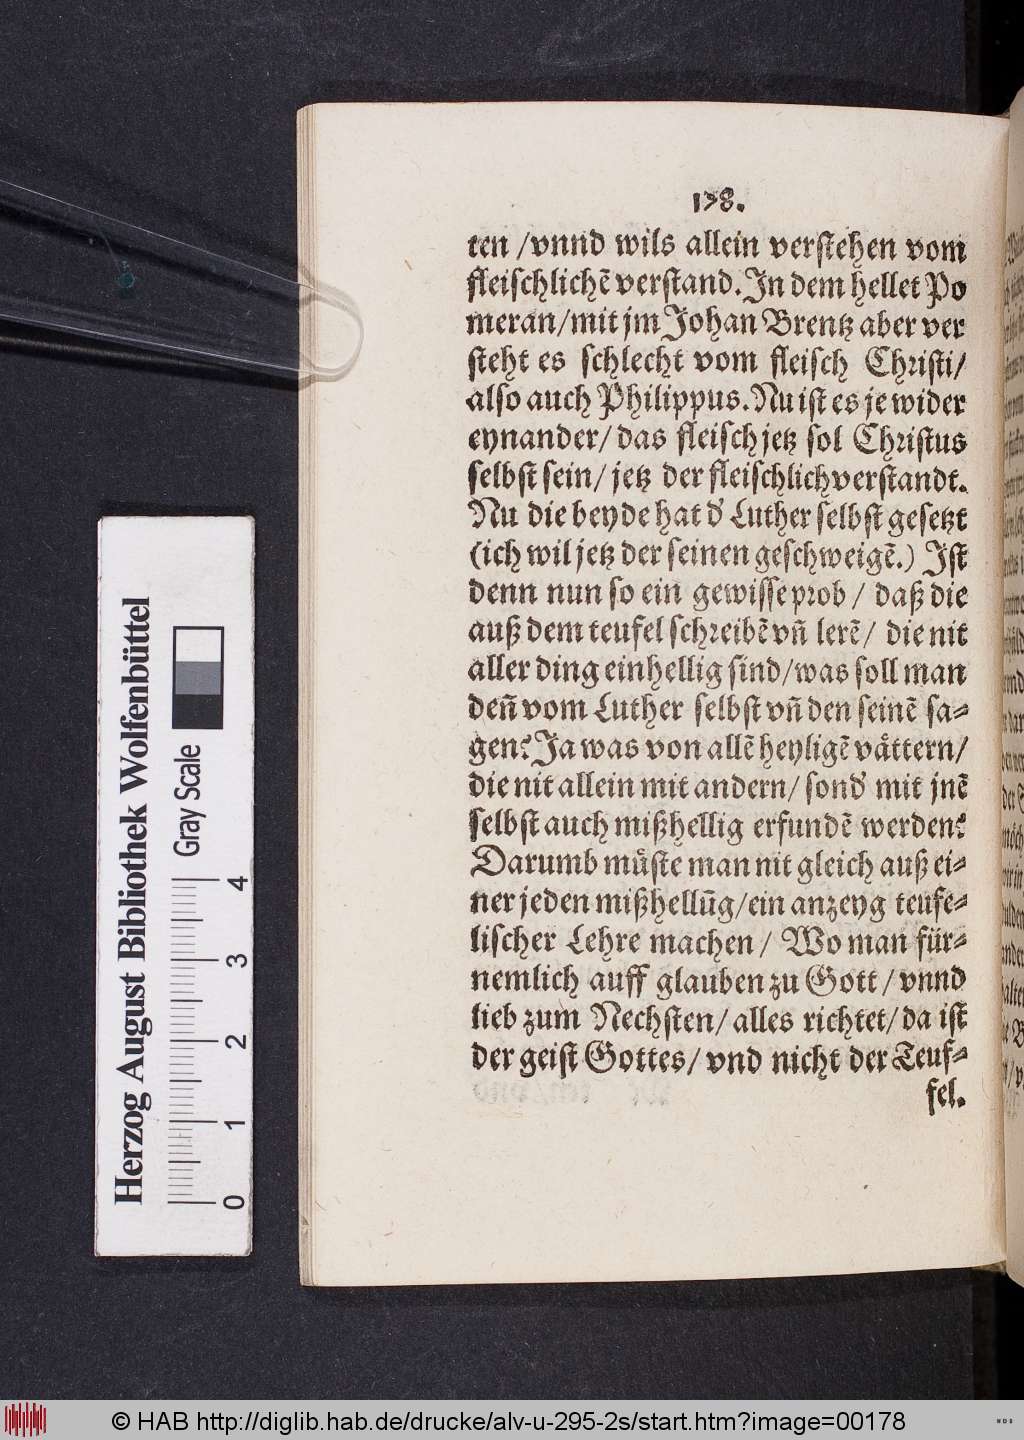 138.
ten /vnnd wils allein verstehen vom
fleischlichẽ verstand. In dem hellet Po
meran/mit jm Johan Brentz aber ver
steht es schlecht vom fleisch Christi/
also auch Philippus. Nu ist es je wider
eynander/ das fleisch jetz sol Christus
selbst sein/ jetz der fleischlich verstandt.
Nu die beyde hat d' Luther selbst gesetzt
(ich wil jetz der seinen geschweigẽ.) Ist
denn nun so ein gewisse prob / daß die
auß dem teufel schreibẽ vñ lerẽ/ die nit
aller ding einhellig sind/was soll man
deñ vom Luther selbst vñ den seinẽ sa⸗
gen? Ja was von allẽ heyligẽ våttern/
die nit allein mit andern/ sond' mit jnẽ
selbst auch mißhellig erfundẽ werden?
Darumb můste man nit gleich auß ei⸗
ner jeden mißhellũg/ein anzeyg teufe⸗
lischer Lehre machen / Wo man für⸗
nemlich auff glauben zu Gott / vnnd
lieb zum Nechsten/ alles richtet/ da ist
der geist Gottes/ vnd nicht der Teuf⸗
fel.
Herzog August Bibliothek Wolfenbüttel
Gray Scale
0 1 2 3 4
© HAB http://diglib.hab.de/drucke/alv-u-295-2s/start.htm?image=00178